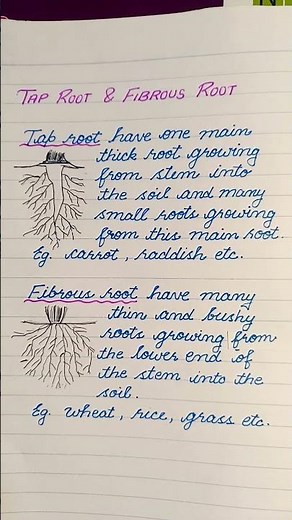 TAP ROOT & FIBROUS ROOT
Tap root have one main
thick root growing
from stem into
the soil and many
small roots growing
from this main root.
Eg. carrot, raddish etc.
Fibrous root have many
thin and bushy
roots growing from
the lower end of
the stem into the
soil.
Eg. wheat, rice, grass etc.